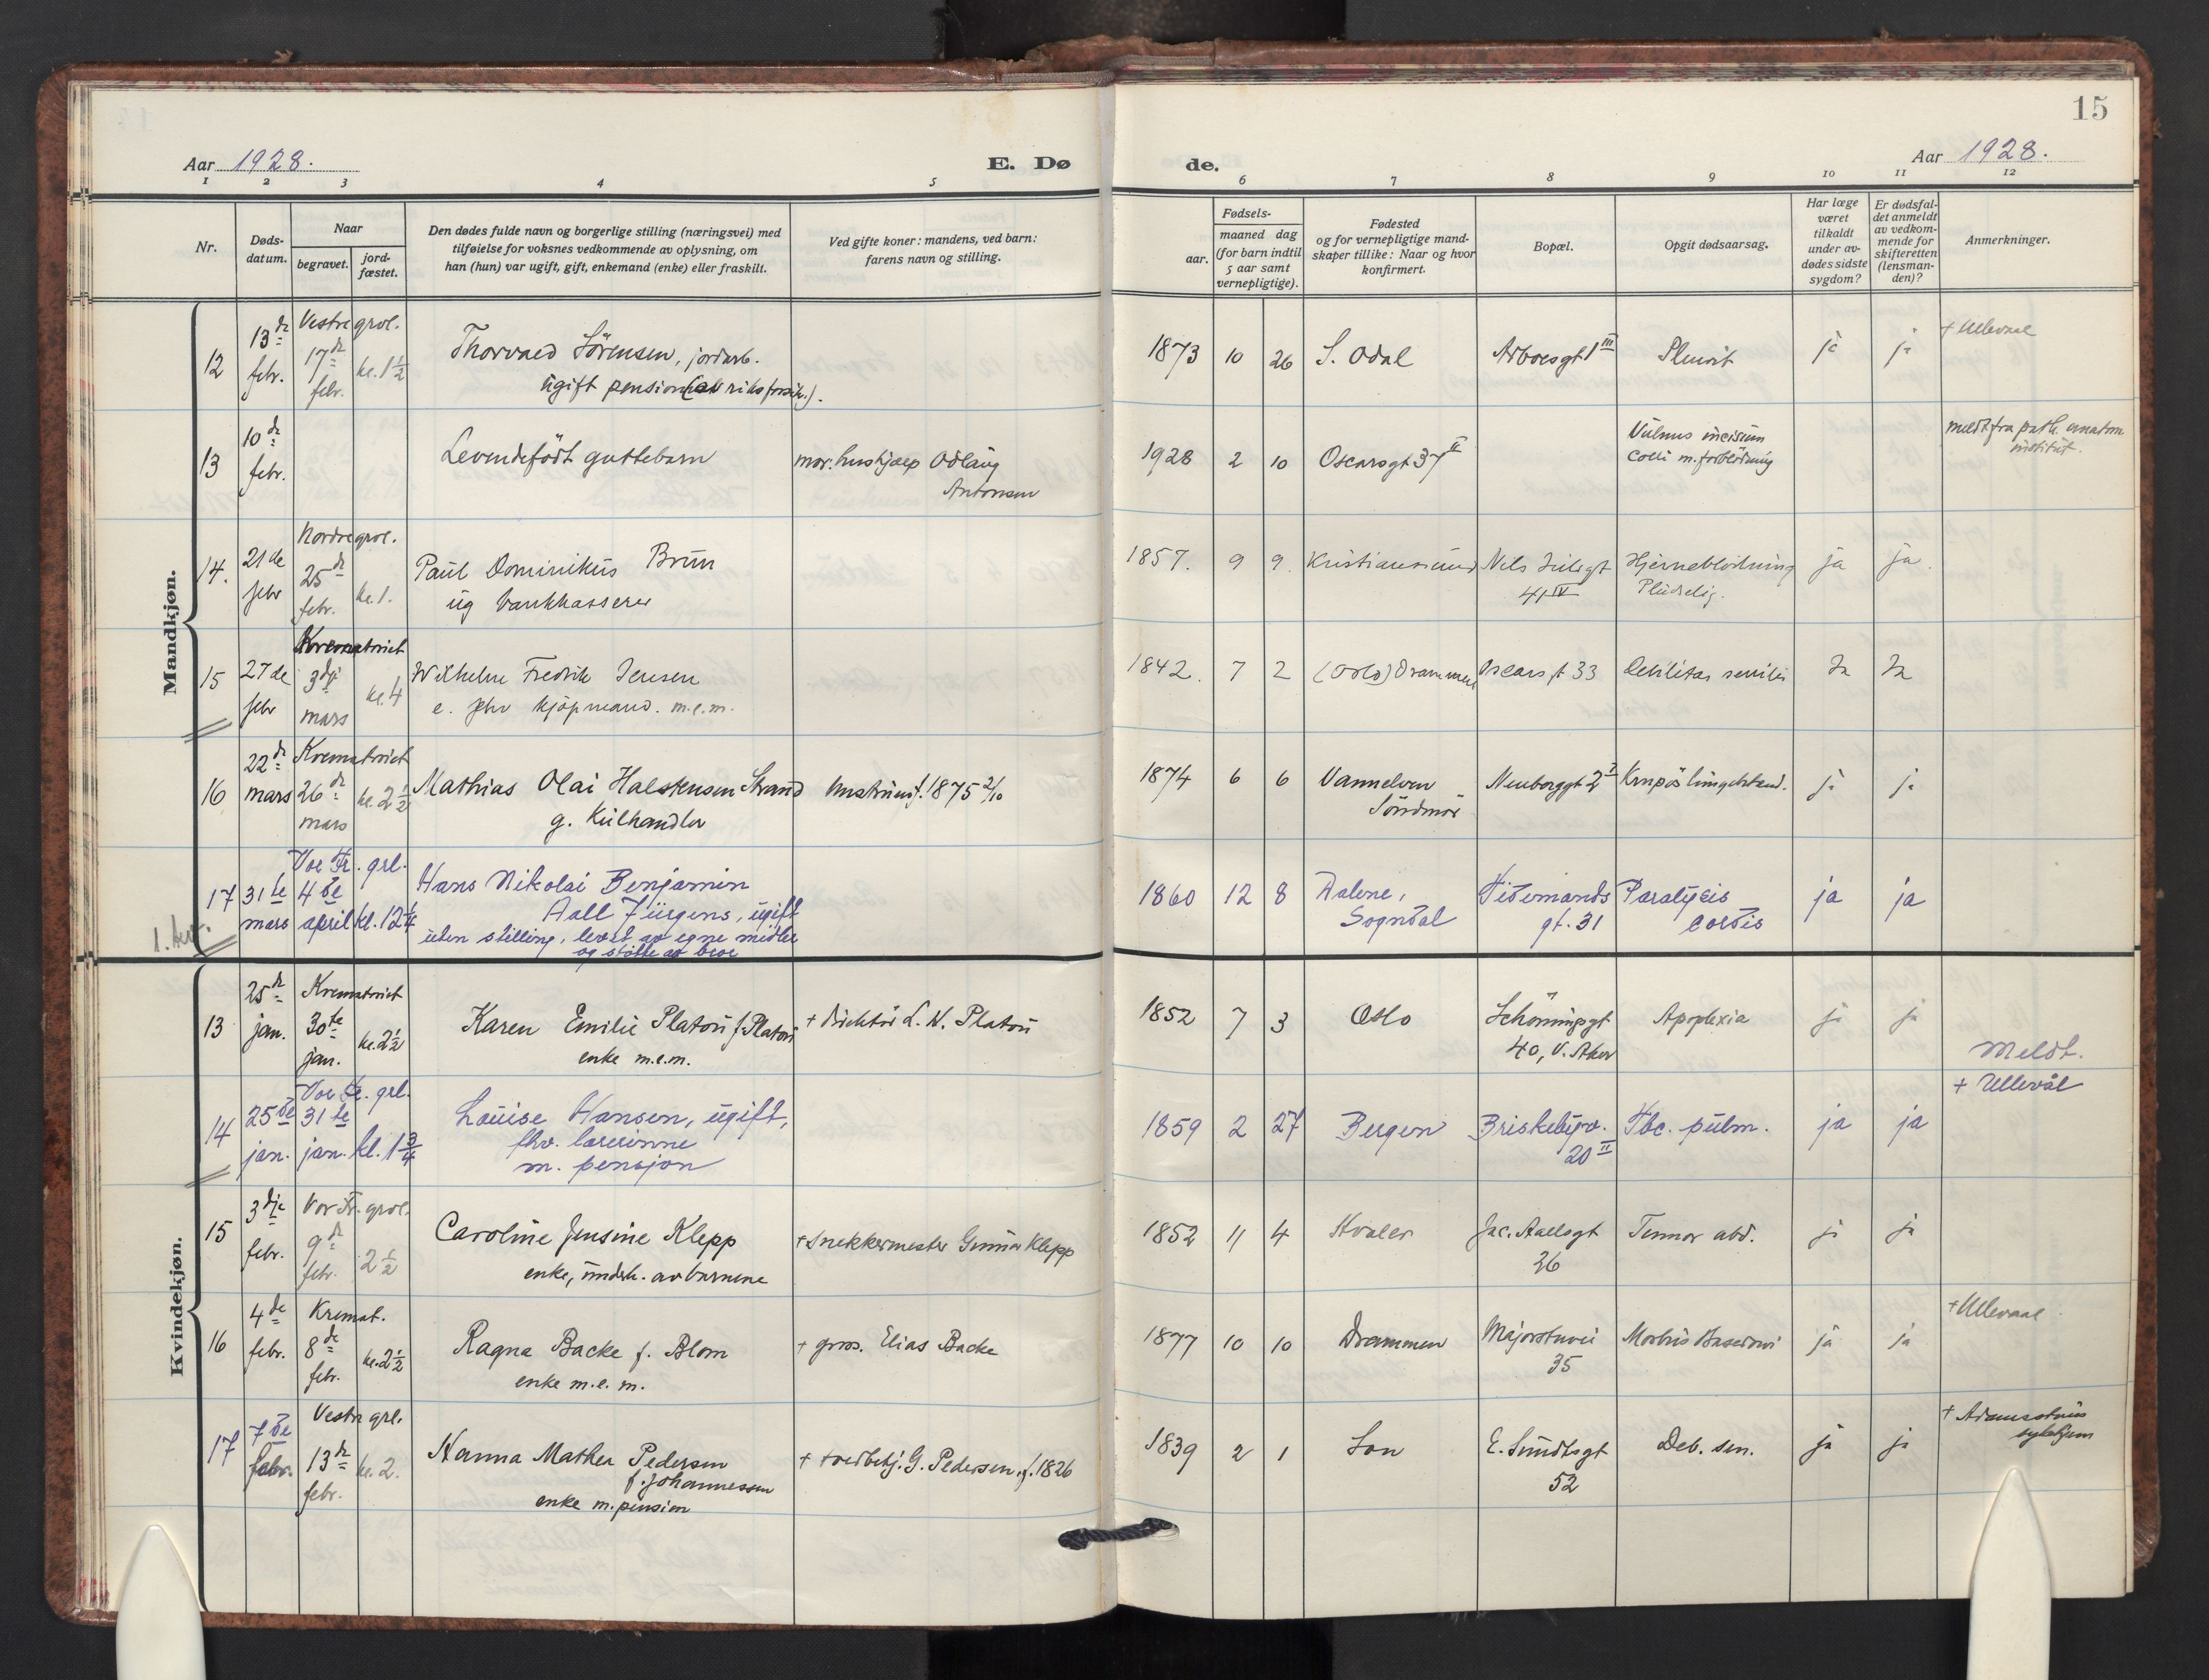 15
Aar 1928.
E. Dø
de.
Aar 1928.
1 2 3 4 5 6 7 8 9 10 11 12
Nr.
Døds-
datum.
Naar
begravet.
jord-
fæstet.
Den dødes fulde navn og borgerlige stilling (næringsvei) med
tilføielse for voksnes vedkommende av oplysning, om
han (hun) var ugift, gift, enkemand (enke) eller fraskilt.
Ved gifte koner: mandens, ved barn:
farens navn og stilling.
Fødsels-
aar.
maaned dag
(for barn indtil
5 aar samt
vernepligtige).
Fødested
og for vernepligtige mand-
skaper tillike: Naar og hvor
konfirmert.
Bopæl.
Opgit dødsaarsag.
Har læge
været
tilkaldt
under av-
dødes sidste
sygdom?
Er dødsfal-
det anmeldt
av vedkom-
mende for
skifteretten
(lensman-
den)?
Anmerkninger.
Mandkjøn.
12
13de
febr.
Vestre grvl.
17de
febr.
kl. 1½
Thorvald Sörensen, jordarb.
ugift pension (av riksforsik.).
1873 10 26 S. Odal
Arboesgt 1 III
Pleurit
ja ja
+ Ullevaal
13
10de
febr.
Levendefödt guttebarn
mor: hushjælp Odlaug
Antonsen
1928 2 10 Oscarsgt 37 II
Vulnus incisum
colli m. forblödning
meldt fra path. anatom
institut.
14.
21de
febr
Nordre grvl.
25de
febr.
kl. 1.
Paul Dominikus Brun
ug bankkasserer
1857. 9 9. Kristiansund
Nils Juelsgt
41 IV
Hjerneblödning
Pludselig.
ja ja.
15
27de
febr
Krematoriet
3dje
mars
kl. 4
Wilhelm Fredrik Jensen
e. fhv kjöpmand. m.e.m.
1842. 7 2 (Oslo) Drammen
Oscarsgt 33
Debilitas senilis
Ja Ja
16
22de
mars
Krematoriet
26de
mars
kl. 2½
Mathias Olai Halstensen Strand
g. Kulhandler
hustru f. 1875 2/10
1874 6 6 Vannelven
Söndmör
Neubergsgt 2 I
ja ja
17
31te
mars
Vor Fr. grl.
4de
april
kl. 12¼
Hans Nikolai Benjamin
Aall Jürgens, ugift
uten stilling, levet av egne midler
og stötte av bror
1860 12 8 Aalene,
Sogndal
Tidemands
gt. 31
Paralysis
cordis
ja ja
1. kv.
Kvindekjøn.
13
25de
jan.
Krematoriet
30te
jan.
kl. 2½
Karen Emilie Platou f. Platou
enke m.e.m.
+ direktör L. N. Platou
1852 7 3 Oslo
Schönningsgt
40, V. Aker
Apoplexia
ja ja
Meldt.
14
25de
jan.
Vor Fr. grl.
31te
jan.
kl. 1¾
Louise Hansen, ugift,
fhv. lærerinne
m. pensjon
1859 2 27 Bergen
Briskebyv.
20 II
Tbc. pulm.
ja ja
+ Ullevål
15
3dje
febr.
Vor Fr. grvl.
9de
febr.
2½
Caroline Jensine Klepp
enke, underh. av barnene
+ Snekkermester Gunnar Klepp
1852 11 4 Hvaler
Jac. Aallsgt
26
Tumor abd.
ja ja
16
4de
febr.
Kremat.
8de
febr.
kl. 2½
Ragna Backe f. Blom
enke m.e.m.
+ gros. Elias Backe
1877 10 10 Drammen
Majorstuvei
35
Morbus Basedowi
ja ja
+ Ullevaal
17
7de
febr.
Vestre grl.
13de
febr.
kl. 2.
Hanna Mathea Pedersen
f. Johannessen
enke m. pension
+ toldbetj. G. Pedersen, f. 1826
1839 2 1 Son
E. Sundtsgt
52
Deb. sen.
ja ja
+ Adamsstuens
sykehjem